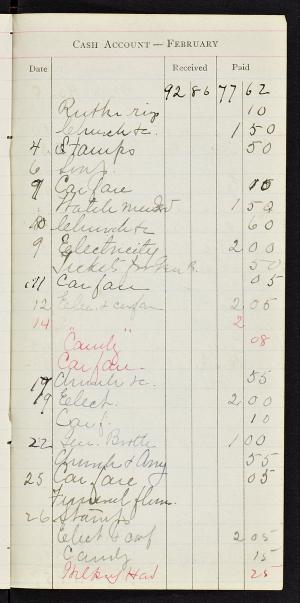 CASH ACCOUNT — FEBRUARY
Date Received Paid
92 86 77 62
Ruth 10
Church &c. 1 50
4 Stamps 50
6
9 Carfare 15
Watch 1 50
10 Church &c 60
9 Electricity 2 00
Tickets 50
11 Carfare 05
12 Elec. & carfare 2 05
14 2
"Candy" 08
Carfare
17 Church &c. 55
19 Elect. 2 00
Carf. 10
22 1 00
Church & 55
25 Carfare 05
Funeral
26 Stamps
Elect & carf 2 05
Candy 15
25